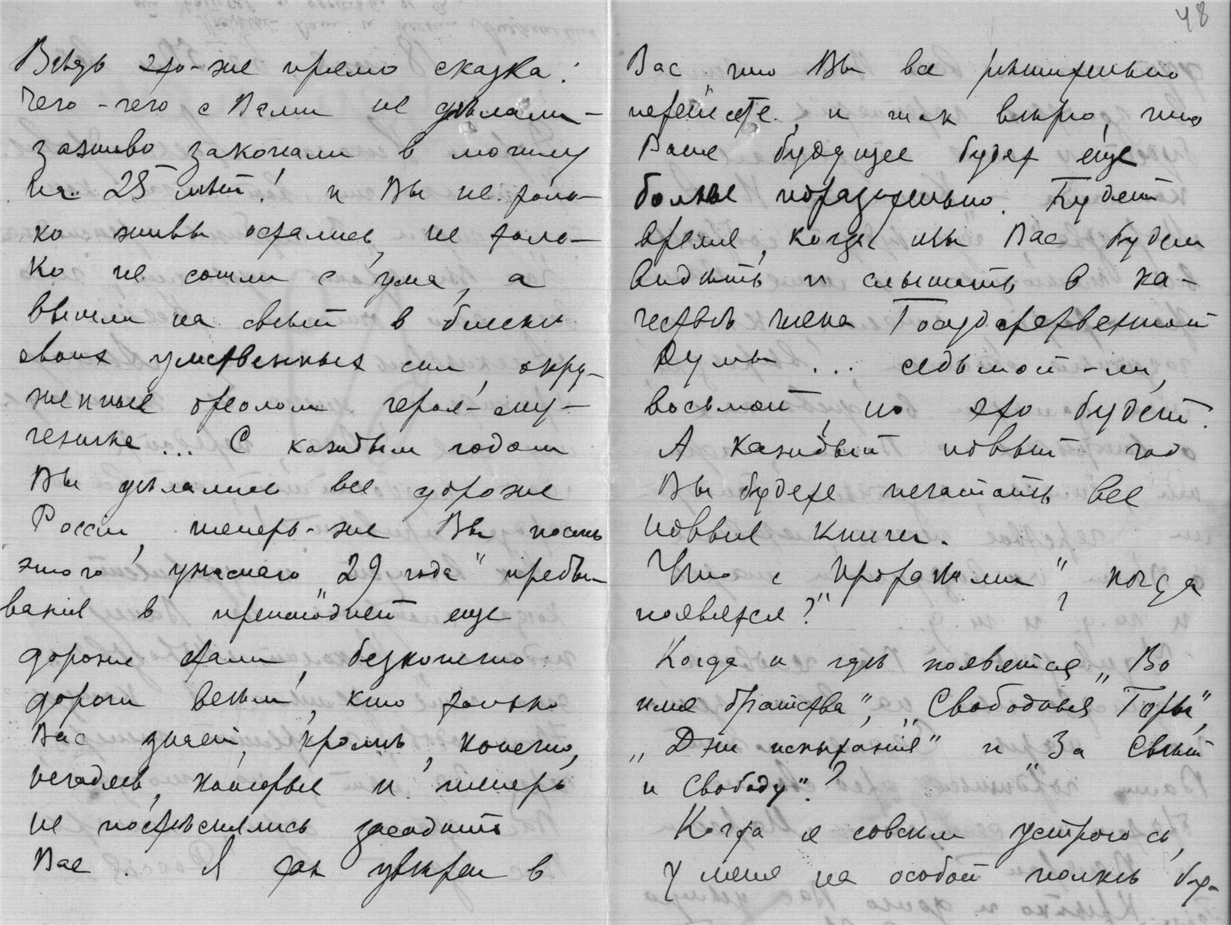 Вѣдь это-же прямо сказка:
Чего-чего с Вами не дѣлали –
заживо закопали в могилу
на 25 лѣт! и Вы не толь-
ко живы остались, не толь-
ко не сошли с ума, а
вышли на свѣт в блескѣ
своих умственных сил, окру-
женные ореолом героя-му-
ченика... С каждым годом
Вы дѣлались все дороже
России, теперь-же Вы послѣ
этого ужаснаго „29 года" пребы-
вания в преисподней еще
дороже стали, безконечно
дороги всѣм, кто только
Вас знает, кромѣ, конечно,
негодяев, которые и теперь
не постѣснялись засадить
Вас. Я так увѣрен в
48
Вас что Вы все рѣшительно
перенесете, и так вѣрю, что
Ваше будущее будет еще
болѣе поразительно. Будет
время, когда мы Вас будем
видѣть и слышать в ка-
чествѣ члена Государственной
Думы... седьмой-ли,
восьмой, но это будет.
А каждый новый год
Вы будете печатать все
новыя книги.
Что с „Пророками", когда
появятся?
Когда и гдѣ появятся „Во
имя братства", „Свободныя Горы",
„Дни испытания" и „За Свѣт
и Свободу"?
Когда я совсѣм устроюсь,
у меня на особой полкѣ бу-